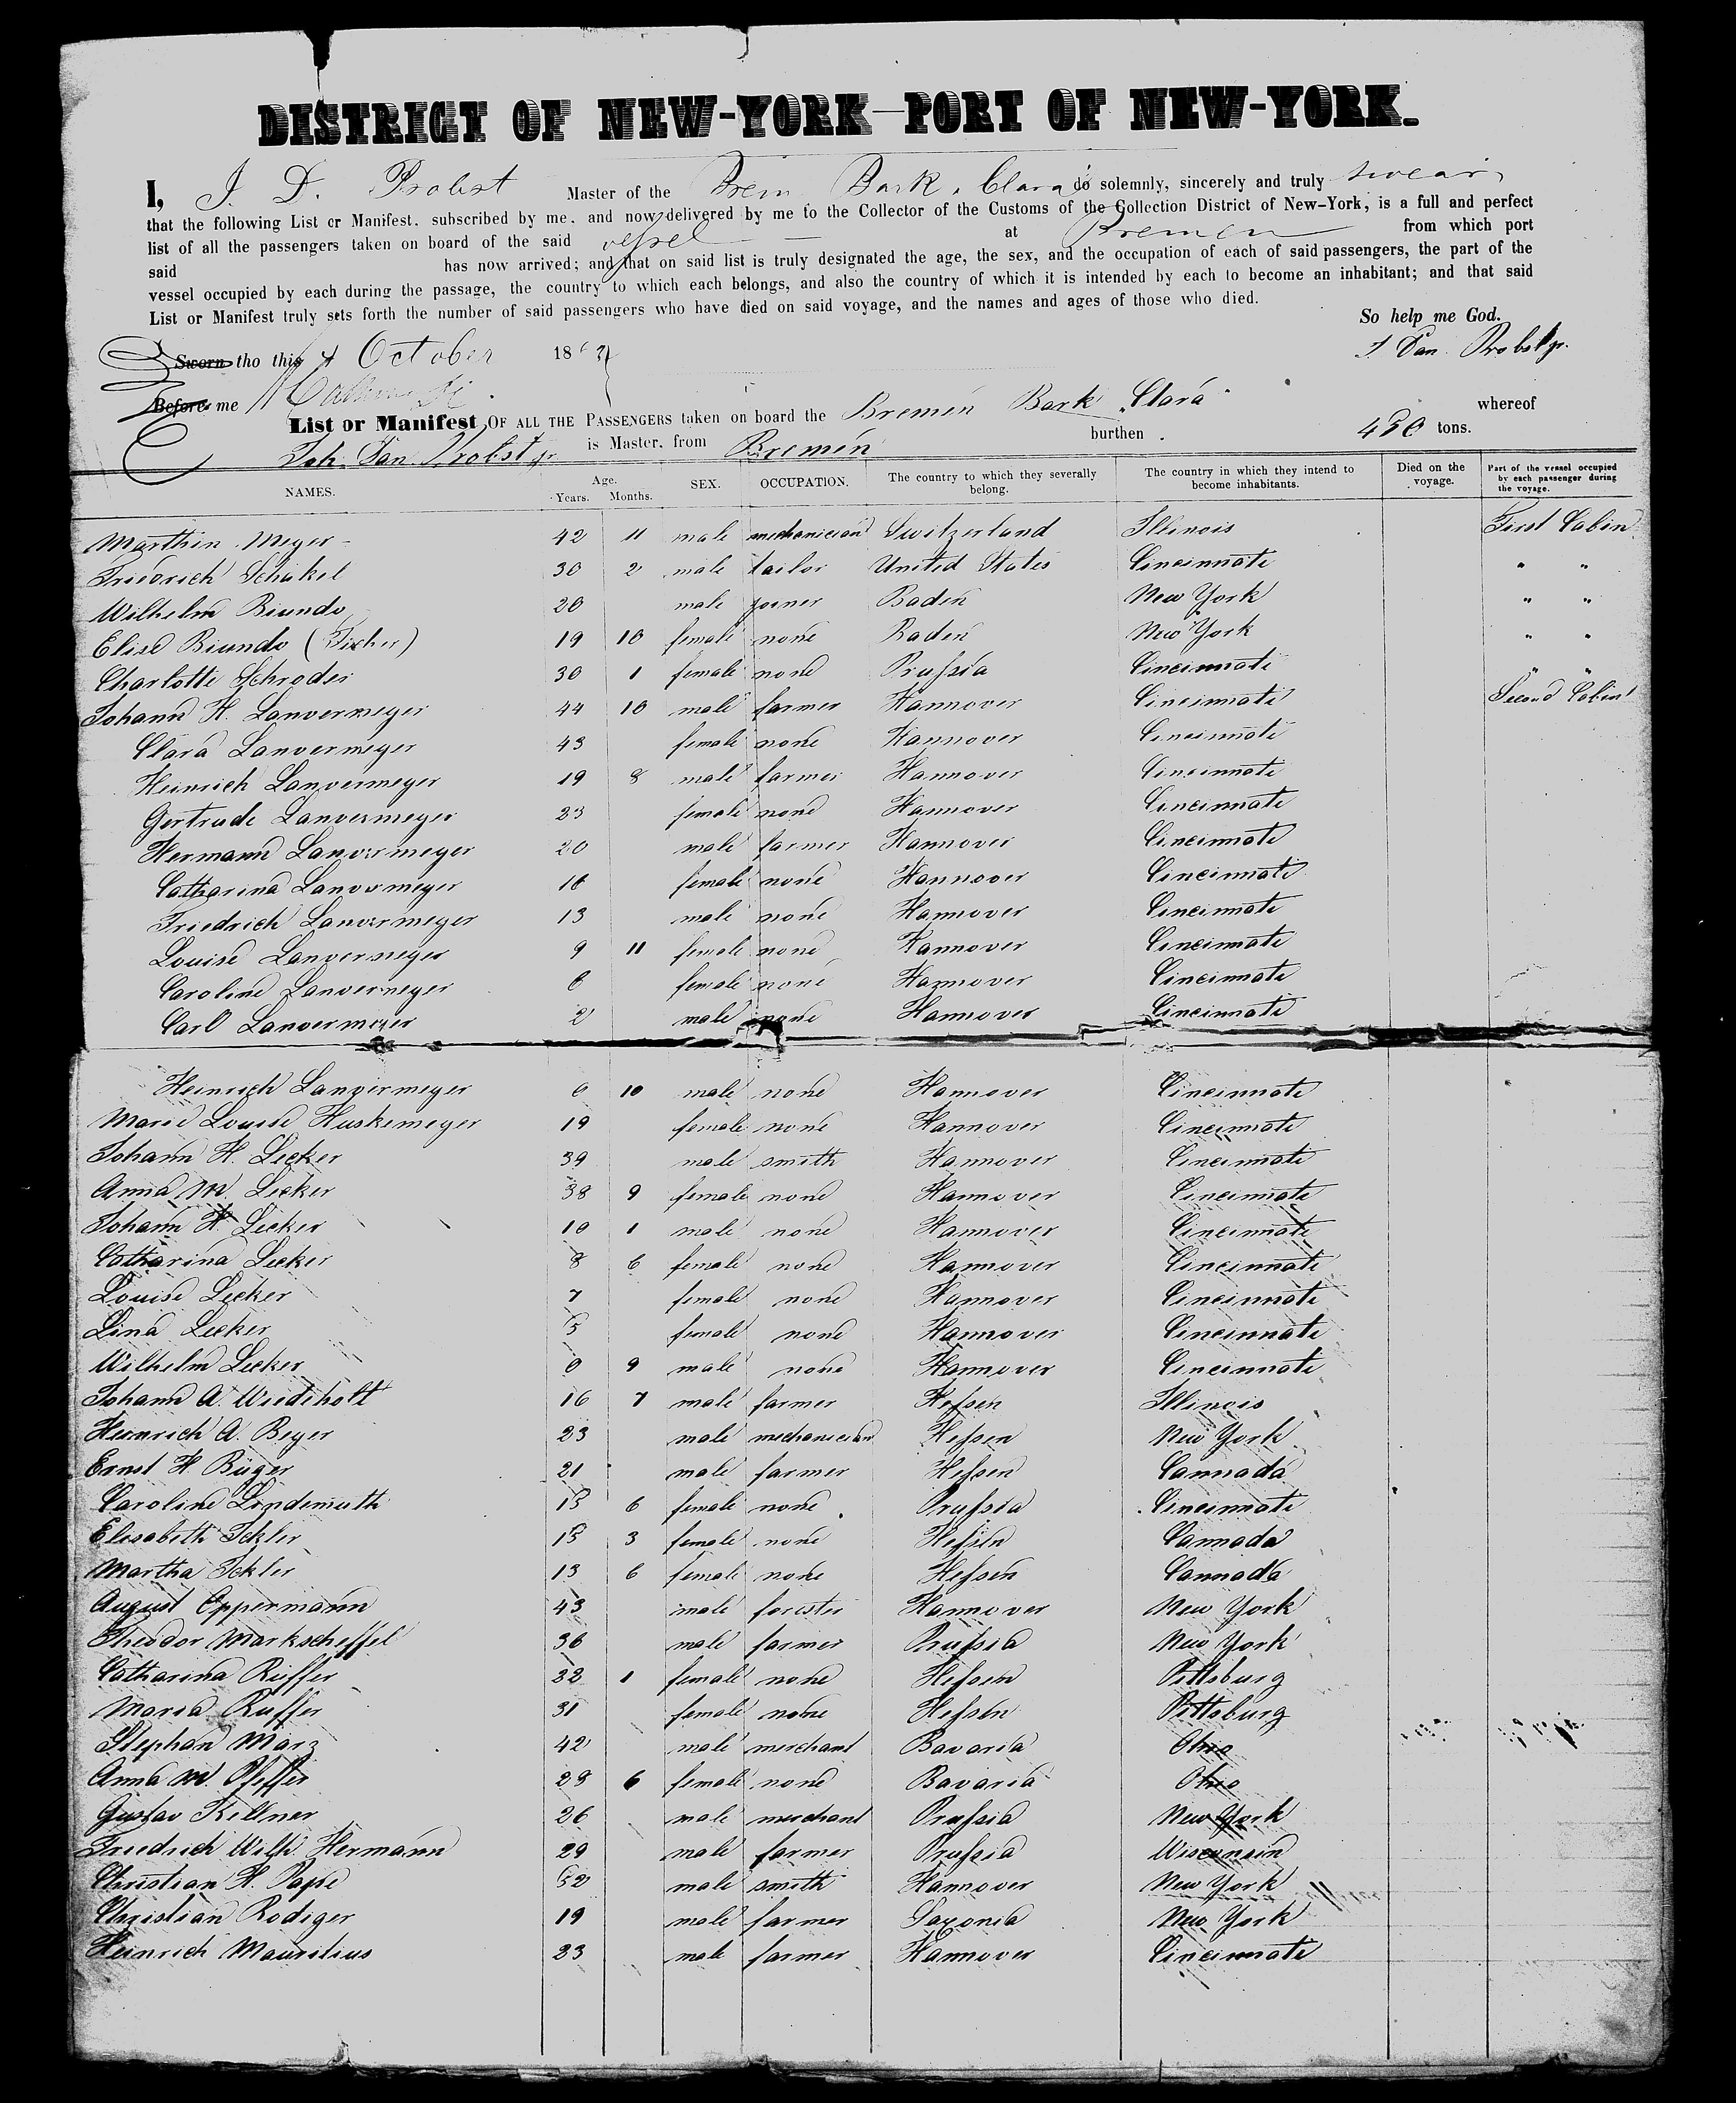 DISTRICT OF NEW-YORK—PORT OF NEW-YORK.
I, J. D. Probst Master of the Brem Bark „Clara" do solemnly, sincerely and truly swear
that the following List or Manifest, subscribed by me, and now delivered by me to the Collector of the Customs of the Collection District of New-York, is a full and perfect
list of all the passengers taken on board of the said vessel — at Bremen from which port
said has now arrived; and that on said list is truly designated the age, the sex, and the occupation of each of said passengers, the part of the
vessel occupied by each during the passage, the country to which each belongs, and also the country of which it is intended by each to become an inhabitant; and that said
List or Manifest truly sets forth the number of said passengers who have died on said voyage, and the names and ages of those who died.
So help me God.
Sworn tho this 4 October 186 J Dan. Probst jr.
Before me
List or Manifest OF ALL THE PASSENGERS taken on board the Bremen Bark „Clara" whereof
Joh. Dan. Probst jr is Master, from Bremen burthen 450 tons.
NAMES. Age. Years. Months. SEX. OCCUPATION. The country to which they severally belong. The country in which they intend to become inhabitants. Died on the voyage. Part of the vessel occupied by each passenger during the voyage.
Marthin Meyer 42 11 male mechanician Switzerland Illinois First Cabin
Friedrich Schakel 30 2 male tailor United States Cincinnati " "
Wilhelm Biundo 20 male joiner Baden New York " "
Elise Biundo (Fischer) 19 10 female none Baden New York " "
Charlotte Schroder 30 1 female none Prussia Cincinnati " "
Johann H. Lanvermeyer 44 10 male farmer Hannover Cincinnati Second Cabin
Clara Lanvermeyer 43 female none Hannover Cincinnati
Heinrich Lanvermeyer 19 8 male farmer Hannover Cincinnati
Gertrude Lanvermeyer 23 female none Hannover Cincinnati
Hermann Lanvermeyer 20 male farmer Hannover Cincinnati
Catharina Lanvermeyer 16 female none Hannover Cincinnati
Friedrich Lanvermeyer 13 male none Hannover Cincinnati
Louise Lanvermeyer 9 11 female none Hannover Cincinnati
Caroline Lanvermeyer 6 female none Hannover Cincinnati
Carl Lanvermeyer 2 male none Hannover Cincinnati
Heinrich Lanvermeyer 0 10 male none Hannover Cincinnati
Marie Louise Huskemeyer 19 female none Hannover Cincinnati
Johann H. Lecker 39 male smith Hannover Cincinnati
Anna M. Lecker 38 9 female none Hannover Cincinnati
Johann H. Lecker 10 1 male none Hannover Cincinnati
Catharina Lecker 8 6 female none Hannover Cincinnati
Louise Lecker 7 female none Hannover Cincinnati
Lina Lecker 5 female none Hannover Cincinnati
Wilhelm Lecker 0 9 male none Hannover Cincinnati
Johann A. Wiederholt 16 7 male farmer Hessen Illinois
Heinrich A. Beyer 23 male mechanician Hessen New York
Ernst H. Büger 21 male farmer Hessen Cannada
Caroline Lindemuth 15 6 female none Prussia Cincinnati
Elisabeth Ickler 15 3 female none Hessen Cannada
Martha Ickler 13 6 female none Hessen Cannada
August Oppermann 43 male forester Hannover New York
Theodor Markscheffel 36 male farmer Prussia New York
Catharina Rüffer 32 1 female none Hessen Pittsburg
Maria Ruffer 31 female none Hessen Pittsburg
Stephan Marz 42 male merchant Bavaria Ohio
Anna M. Pfeffer 28 6 female none Bavaria Ohio
Gustav Kellner 26 male merchant Prussia New York
Friedrich Wilh. Hermann 29 male farmer Prussia Wisconsin
Christian H. Pape 52 male smith Hannover New York
Christian Rodiger 19 male farmer Saxonia New York
Heinrich Mauritius 23 male farmer Hannover Cincinnati